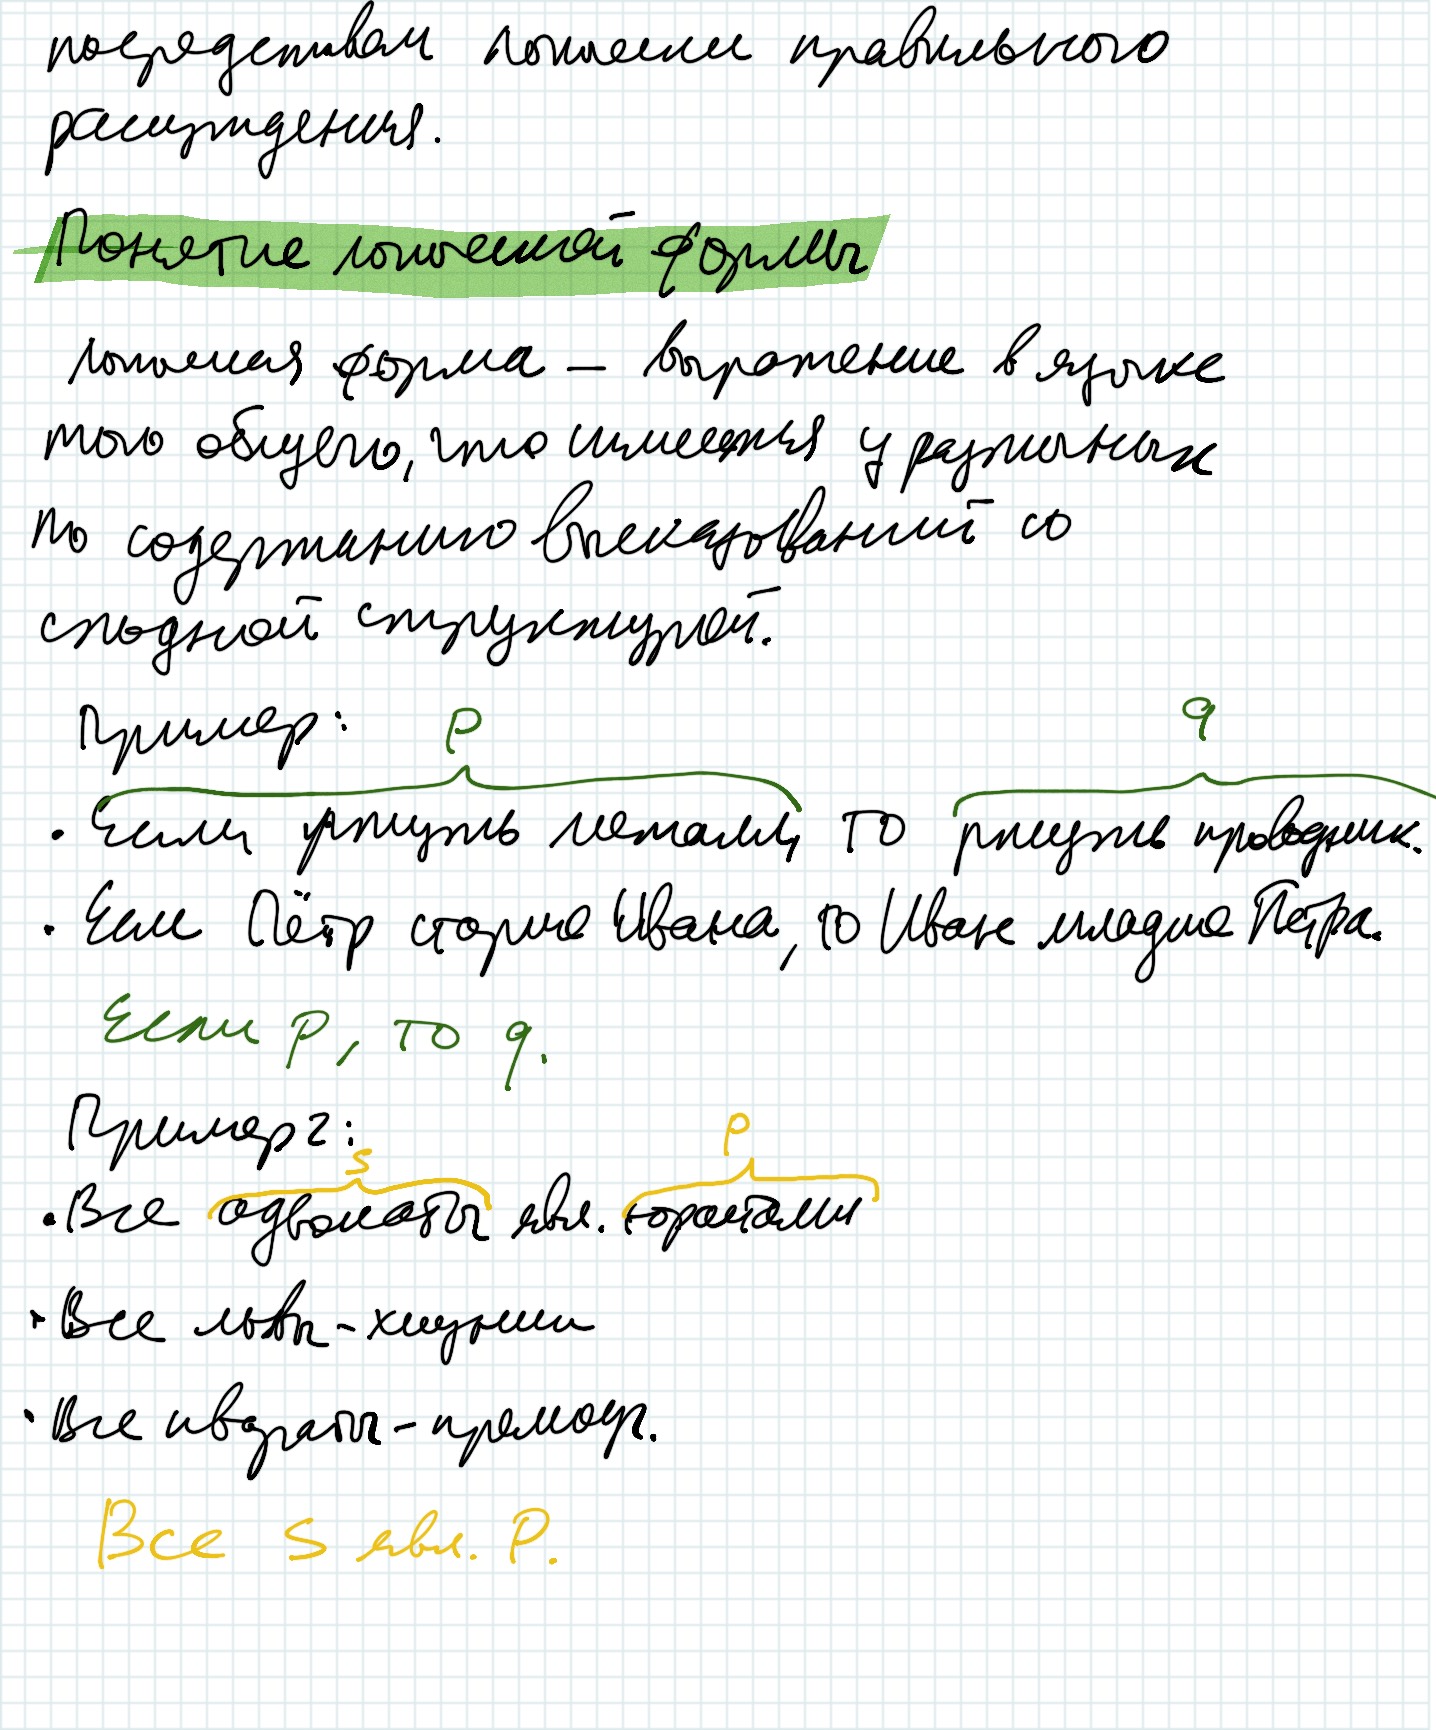 посредством логически правильного
рассуждения.
Понятие логической формы
логическая форма – выражение в языке
того общего, что имеется у различных
по содержанию высказываний со
сходной структурой.
Пример:
p q
· Если ртуть металл, то ртуть проводник.
· Если Пётр старше Ивана, то Иван младше Петра.
Если p, то q.
Пример 2:
S P
· Все адвокаты явл. юристами
· Все львы - хищники
· Все квадраты - прямоуг.
Все S явл. P.